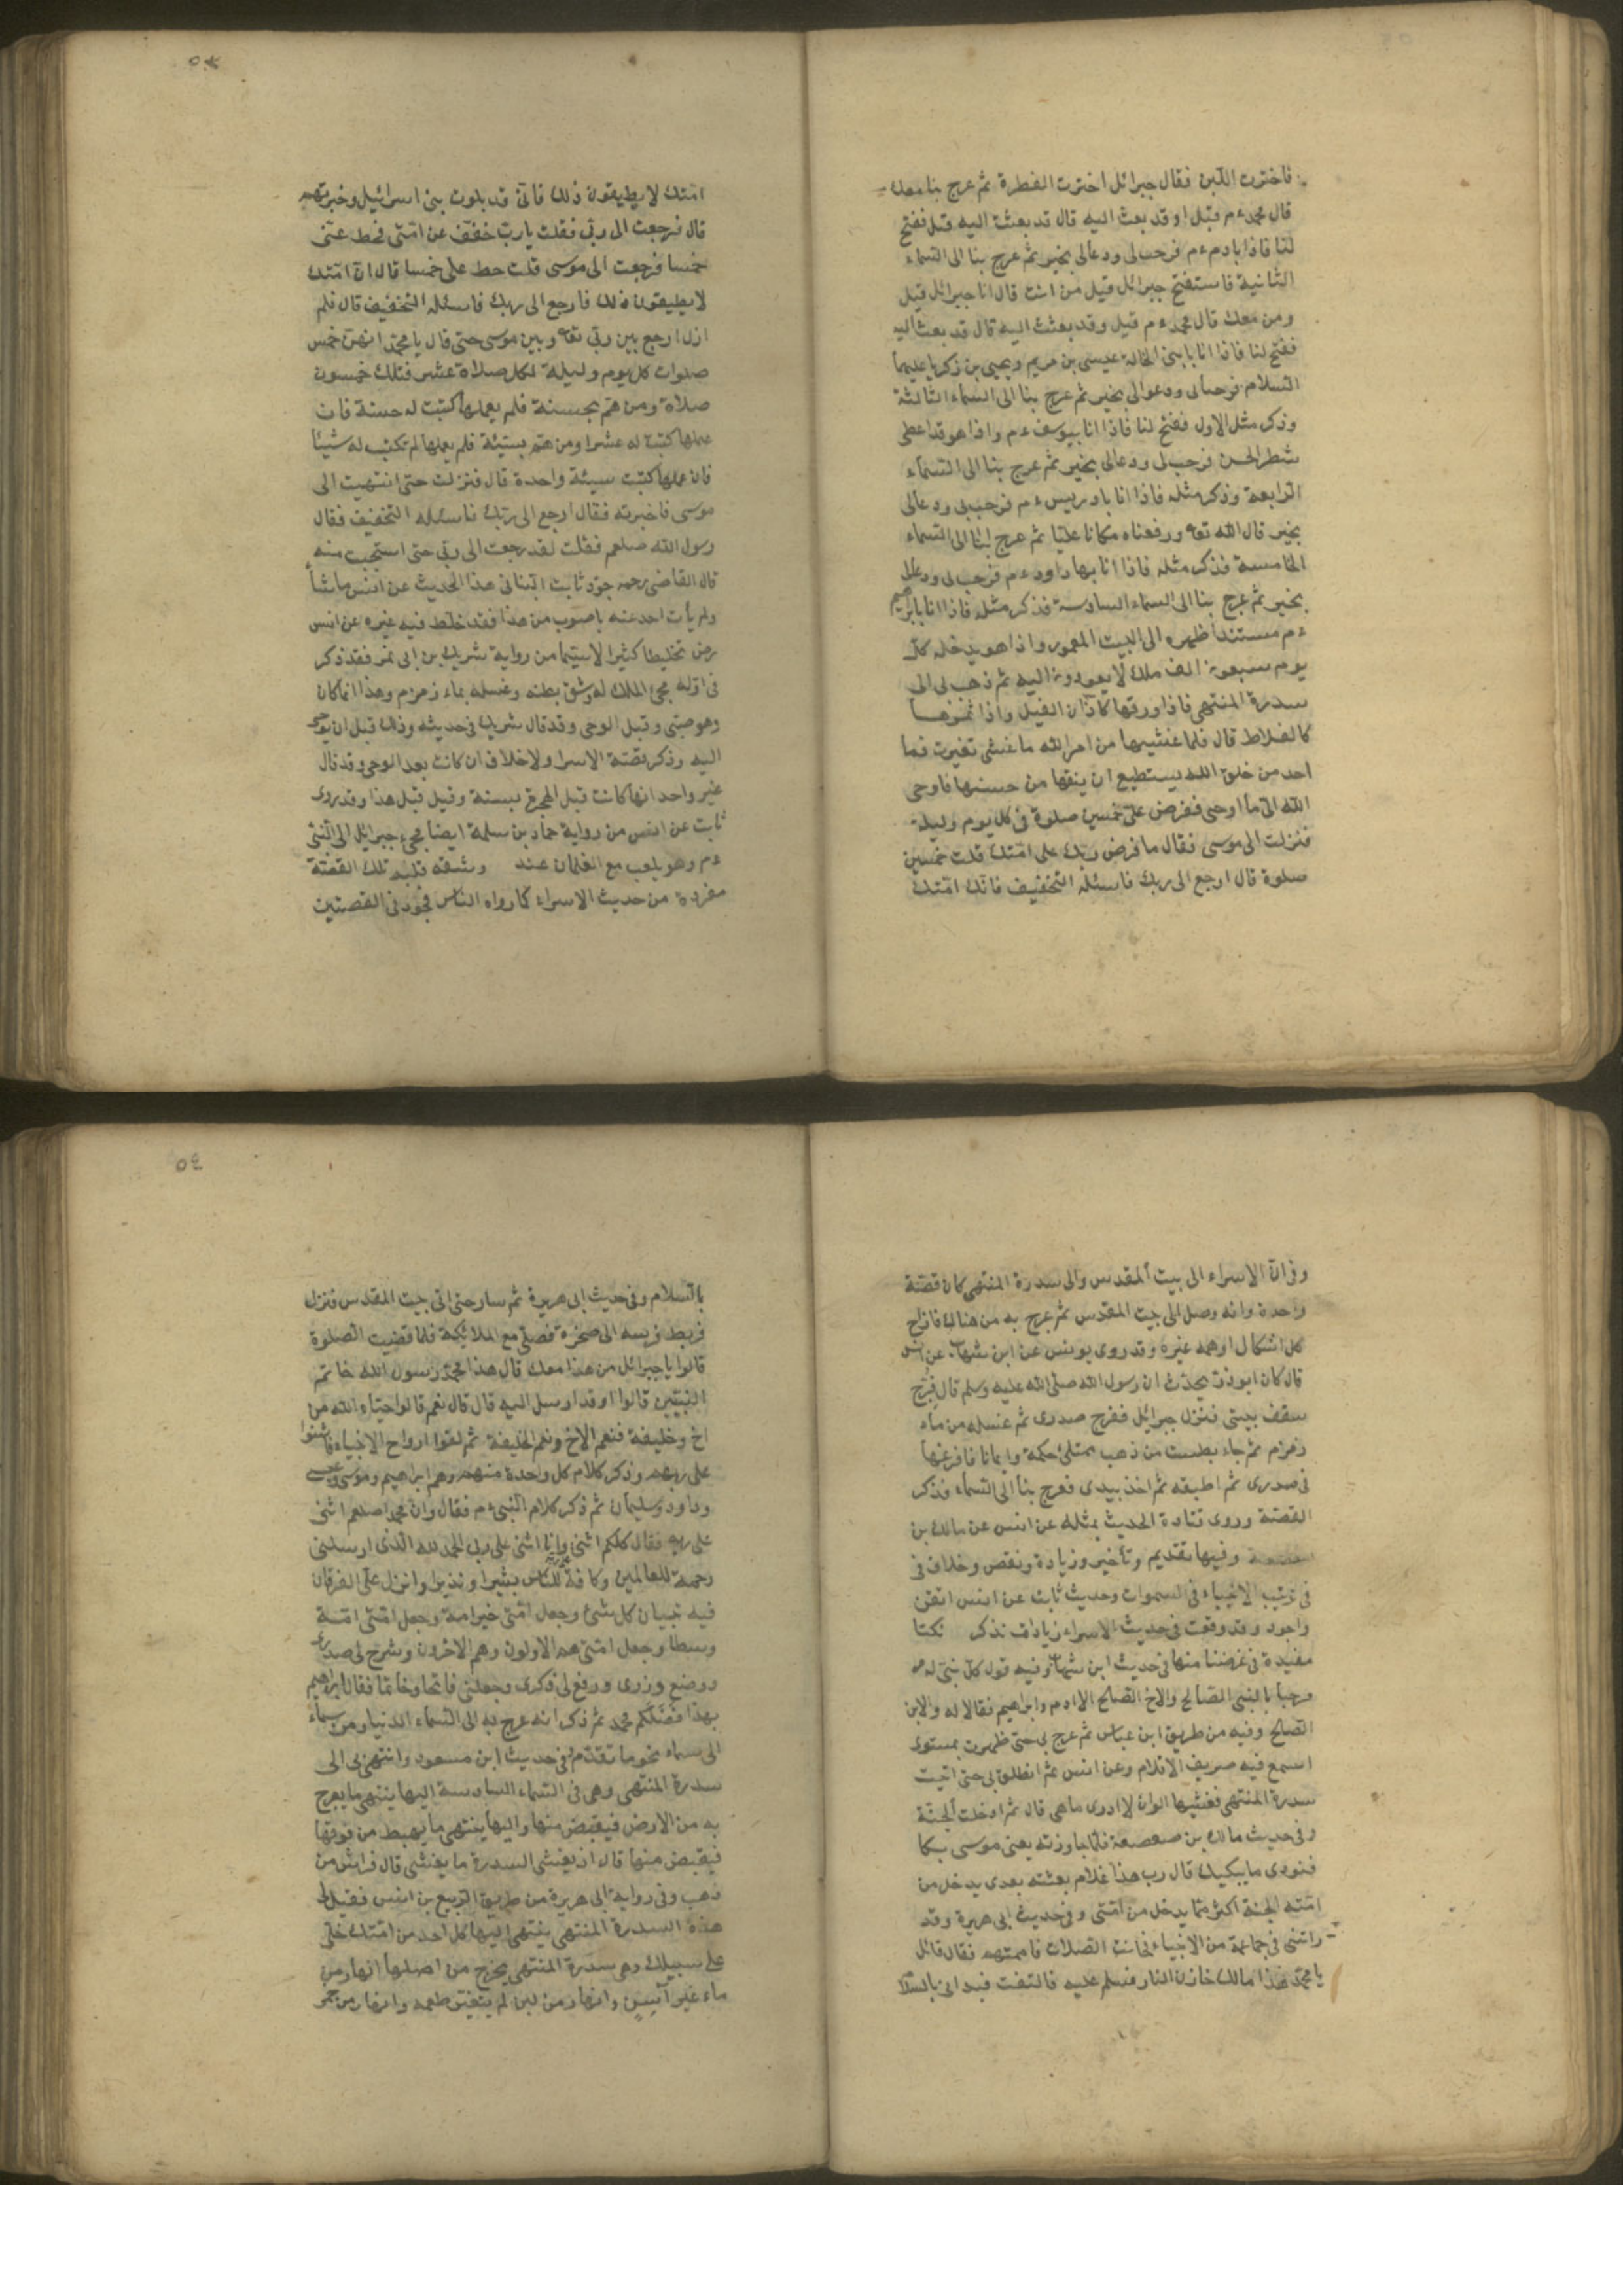 فاخترت اللبن فقال جبرائل اخترت الفطرة ثم عرج بنا معك
قال محمد ءم قيل او قد بعث اليه قال قد بعثت اليه قيل ففتح
لنا فاذا بادم ءم فرحب لى ودعا لى بخير ثم عرج بنا الى السماء
الثانية فاستفتح جبرائل قيل من انت قال انا جبرائل قيل
ومن معك قال محمد ءم قيل وقد بعثت اليه قال قد بعث اليه
ففتح لنا فاذا انا بابنى الخالة عيسى بن مريم ويحيى بن زكريا عليهما
السلام فرحبا لى ودعوا لى بخير ثم عرج بنا الى السماء الثالثة
وذكر مثل الاول ففتح لنا فاذا انا بيوسف ءم واذا هو قد اعطى
شطر الحسن فرحب لى ودعا لى بخير ثم عرج بنا الى السماء
الرابعة وذكر مثله فاذا انا بادريس ءم فرحب بى ودعا لى
بخير قال الله تعه ورفعناه مكانا عليا ثم عرج بنا الى السماء
الخامسة فذكر مثله فاذا انا بهاداود ءم فرحب لى ودعا لى
بخير ثم عرج بنا الى السماء السادسة فذكر مثله فاذا انا بابرهيم
ءم مستندا ظهره الى البيت المعمور واذا هو يدخله كل
يوم سبعون الف ملك لا يعودون اليه ثم ذهب بى الى
سدرة المنتهى فاذا ورقها كاذان الفيل واذا ثمرها
كالقلاط قال فلما غشيها من امر الله ما غشى تغيرت فما
احد من خلق الله يستطيع ان ينعتها من حسنها فاوحى
الله الى ما اوحى ففرض على خمسين صلوة فى كل يوم وليلة
فنزلت الى موسى فقال ما فرض ربك على امتك قلت خمسين
صلوة قال ارجع الى ربك فاسئله التخفيف فانك امتك
٥٣
امتك لا يطيقون ذلك فانى قد بلوت بنى اسرائيل وخبرتهم
قال فرجعت الى ربى فقلت يا رب خفف عن امتى فحط عنى
خمسا فرجعت الى موسى قلت حط على خمسا قال ان امتك
لا يطيقون ذلك فارجع الى ربك فاسئله التخفيف قال فلم
ازل ارجع بين ربى تعه وبين موسى حتى قال يا محمد انهن خمس
صلوات كل يوم وليلة لكل صلاة عشر فتلك خمسون
صلاة ومن هم بحسنة فلم يعملها كتبت له حسنة فان
عملها كتبت له عشرا ومن هم بسيئة فلم يعملها لم تكتب له شيئا
فان عملها كتبت سيئة واحدة قال فنزلت حتى انتهيت الى
موسى فاخبرته فقال ارجع الى ربك فاسئله التخفيف فقال
رسول الله صلعم فقلت لقد رجعت الى ربى حتى استحيت منه
قال القاضى رحمه جود ثابت البنانى هذا الحديث عن انس ما شأ
ولم يأت احد عنه باصوب من هذا فقد خلط فيه غيره عن انس
رض تخليطا كثيرا لاسيما من رواية شريك بن ابى نمر فقد ذكر
فى اوله مجئ الملك له وشق بطنه وغسله بماء زمزم وهذا انما كان
وهو صبى وقبل الوحى وقد قال شريك فى حديثه وذلك قبل ان يوحى
اليه وذكر قصة الاسرا ولا خلاف ان كانت بعد الوحى وقد قال
غير واحد انها كانت قبل الهجرة بسنة وقيل قبل هذا وقد روى
ثابت عن انس من رواية حماد بن سلمة ايضا مجئ جبرائل الى النبى
ءم وهو يلعب مع الغلمان عند وشقه قلبه تلك القصة
مفردة من حديث الاسراء كما رواه الناس فجود فى القصتين
وفى ان الاسراء الى بيت المقدس والى سدرة المنتهى كان قصة
واحدة وانه وصل الى بيت المقدس ثم عرج به من هنالك فازاح
كل اشكال اوهمه غيره وقد روى يونس عن ابن شهاب عن انس
قال كان ابو ذر يحدث ان رسول الله صلى الله عليه وسلم قال فرج
سقف بيتى فنزل جبرائل ففرج صدرى ثم غسله من ماء
زمزم ثم جاء بطست من ذهب ممتلئ حكمة وايمانا فافرغها
فى صدرى ثم اطبقه ثم اخذ بيدى فعرج بنا الى السماء فذكر
القصة وروى قتادة الحديث بمثله عن انس عن مالك بن
صعصعة وفيها تقديم وتأخير وزيادة ونقص وخلاف فى
فى ترتيب الانبياء فى السموات وحديث ثابت عن انس اتقن
واجود وقد وقعت فى حديث الاسراء زيادات نذكر نكتا
مفيدة فى غرضنا منها فى حديث ابن شهاب وفيه قول كل نبى له
مرحبا بالنبى الصالح والاخ الصالح الا ادم وابراهيم فقالا له والابن
الصالح وفيه من طريق ابن عباس ثم عرج بى حتى ظهرت بمستوى
اسمع فيه صريف الاقلام وعن انس ثم انطلق بى حتى اتيت
سدرة المنتهى فغشيها الوان لا ادرى ما هى قال ثم ادخلت الجنة
وفى حديث مالك بن صعصعة فلما جاوزته يعنى موسى بكا
فنودى ما يبكيك قال رب هذا غلام بعثته بعدى يدخل من
امته الجنة اكثر مما يدخل من امتى وفى حديث ابى هريرة وقد
راتنى فى جماعة من الانبياء فحانت الصلات فاممتهم فقال قائل
يا محمد هذا مالك خازن النار فسلم عليه فالتفت فبدانى بالسلا
٥٤
بالسلام وفى حديث ابى هريرة ثم سار حتى اتى بيت المقدس فنزل
فربط فرسه الى صخرة فصلى مع الملائكة فلما قضيت الصلوة
قالوا يا جبرائل من هذا معك قال هذا محمد رسول الله خاتم
النبيين قالوا اوقد ارسل اليه قال قال نعم قالوا حياه الله من
اخ وخليفة فنعم الاخ ونعم الخليفة ثم لقوا ارواح الانبياء فاثنوا
على ربهم وذكر كلام كل واحدة منهم وهم ابراهيم وموسى وعيسى
وداود وسليمان ثم ذكر كلام النبى ءم فقال وان محمدا صلعم اثنى
على ربه فقال كلكم اثنى وانا اثنى على ربى الحمد لله الذى ارسلنى
رحمة للعالمين وكافة للناس بشيرا ونذيرا وانزل على الفرقان
فيه تبيان كل شئ وجعل امتى خير امة وجعل امتى امة
وسطا وجعل امتى هم الاولون وهم الاخرون وشرح لى صدرى
ووضع وزرى ورفع لى ذكرى وجعلنى فاتحا وخاتما فقال ابراهيم
بهذا فضلكم محمد ثم ذكر انه عرج به الى السماء الدنيا ومن سماء
الى سماء نحو ما تقدم وفى حديث ابن مسعود وانتهى بى الى
سدرة المنتهى وهى فى السماء السادسة اليها ينتهى ما يعرج
به من الارض فيقبض منها واليها ينتهى ما يهبط من فوقها
فيقبض منها قال اذ يغشى السدرة ما يغشى قال فراش من
ذهب وفى رواية ابى هريرة من طريق الربيع بن انس فقيل لى
هذه السدرة المنتهى ينتهى اليها كل احد من امتك خلى
على سبيلك وهى سدرة المنتهى يخرج من اصلها انهار من
ماء غير آسن وانهار من لبن لم يتغير طعمه وانهار من خمر